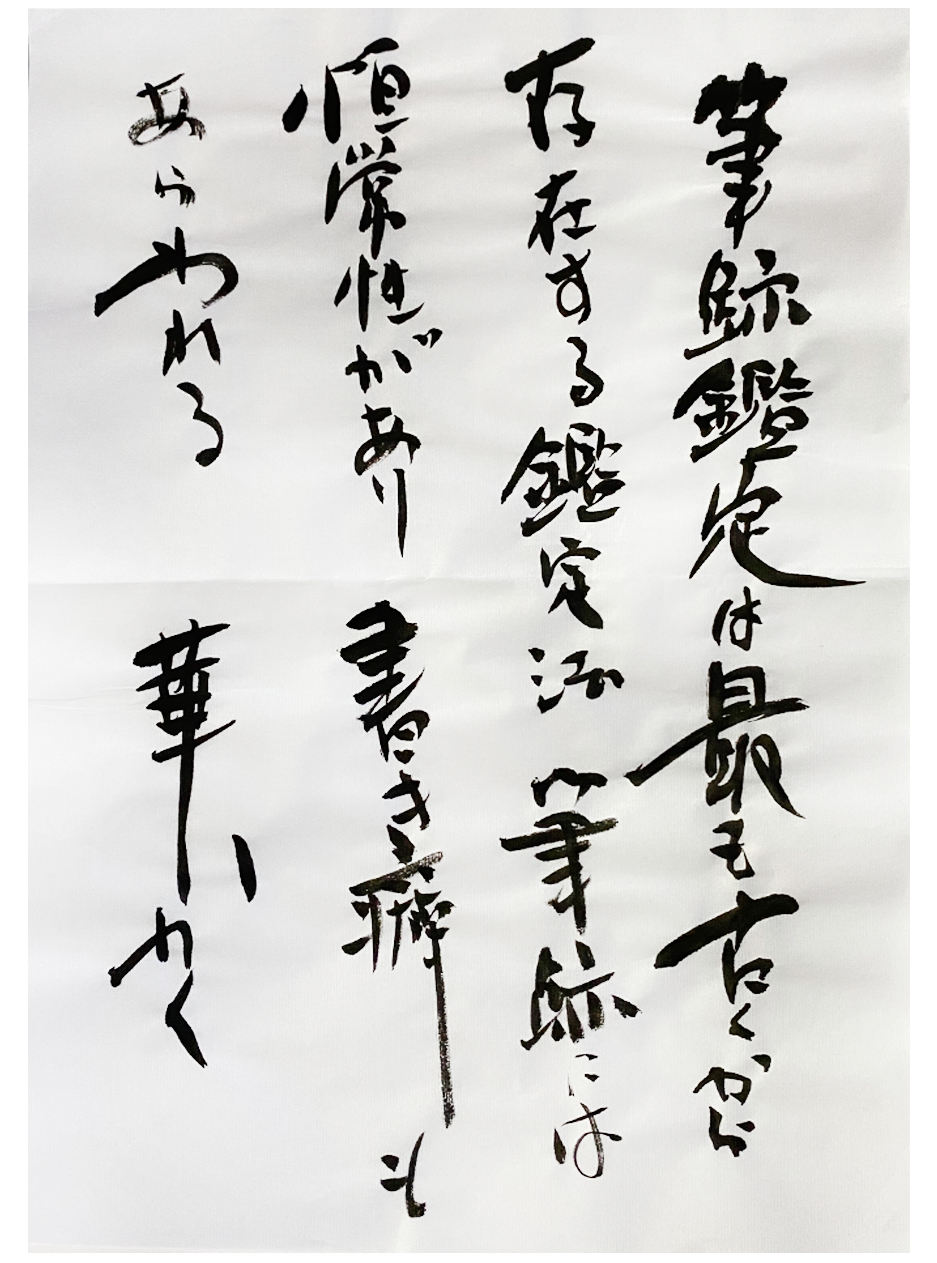 筆跡鑑定は最も古くから
存在する鑑定法 筆跡には
恒常性があり 書き癖も
あらわれる 華かく